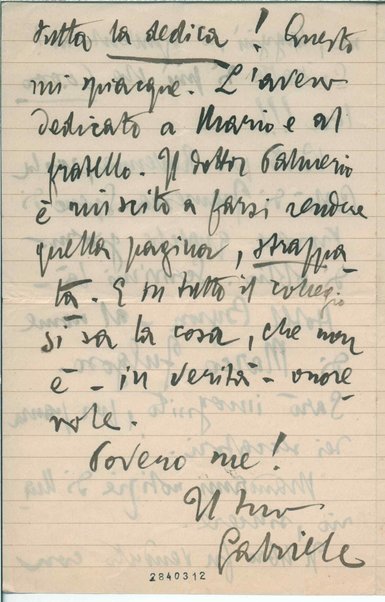 tutta la dedica! Questo
mi spiacque. L'avevo
dedicato a Mario e al
fratello. Il dottor Palmerio
è riuscito a farsi rendere
quella pagina, strappa
ta. E in tutto il collegio
si sa la cosa, che non
è - in verità - onore
vole.
Povero me!
Il tuo
Gabriele
2840312